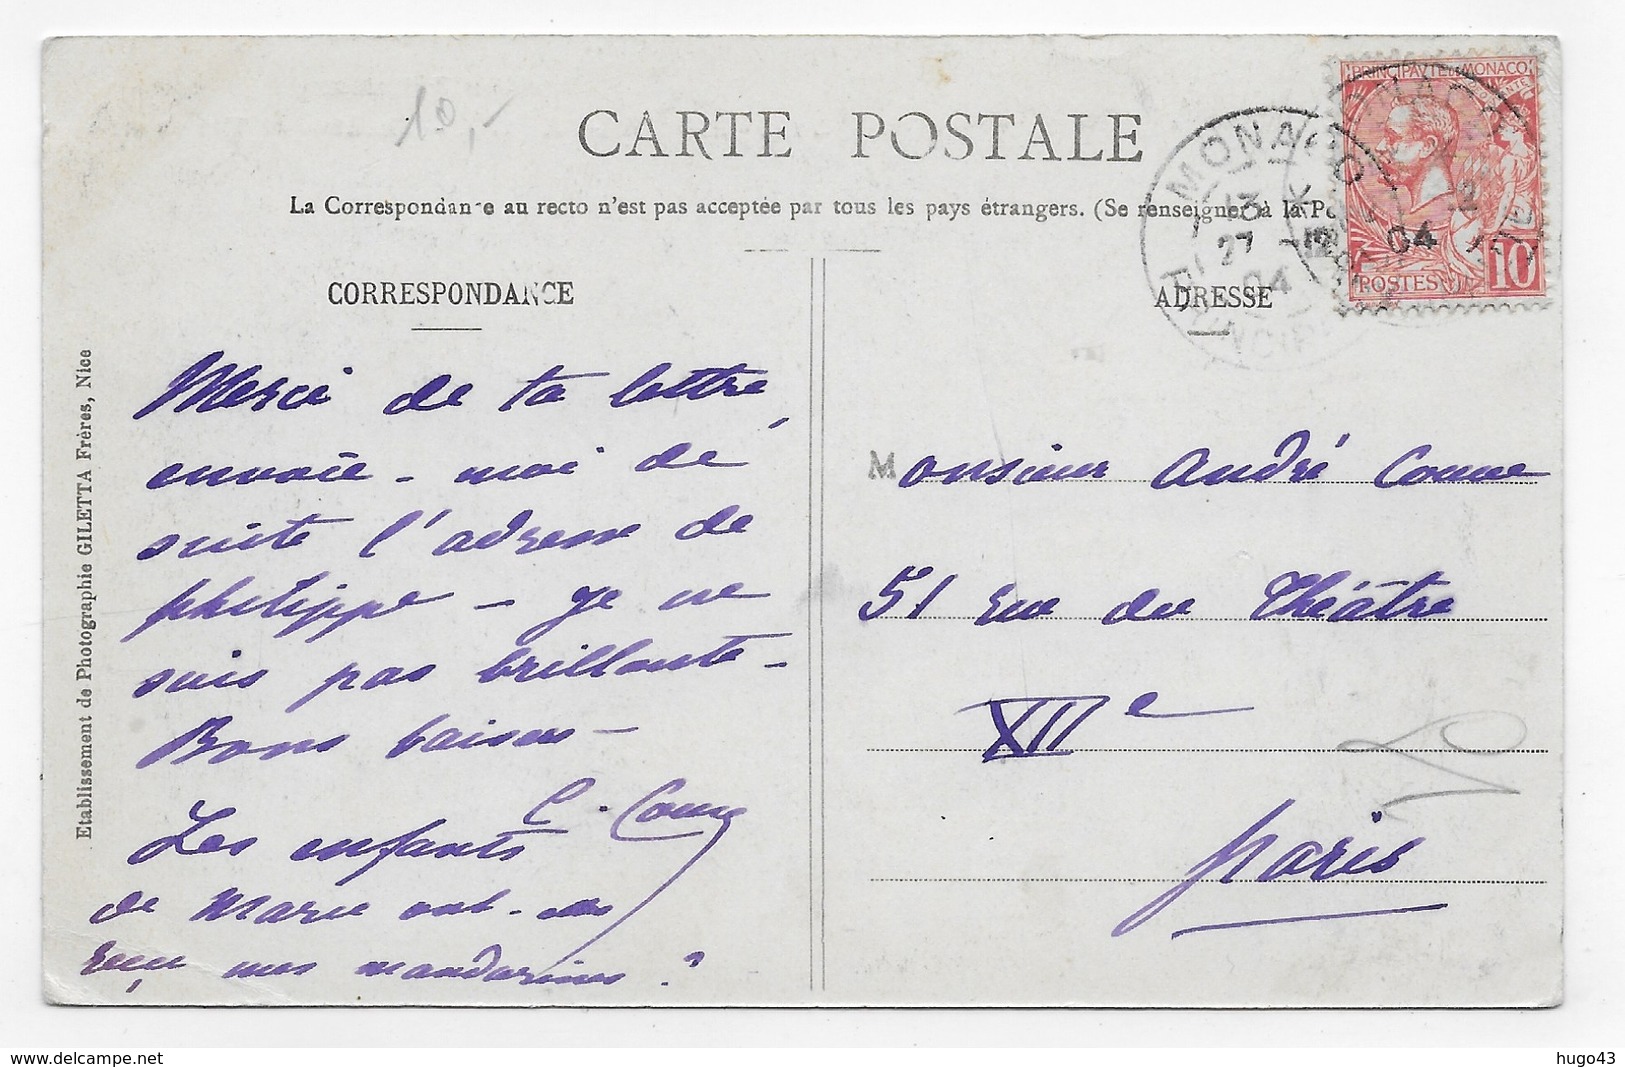 10,-
CARTE POSTALE
La Correspondance au recto n'est pas acceptée par tous les pays étrangers. (Se renseigner à la Po
CORRESPONDANCE
Merci de ta lettre,
envoie-moi de
suite l'adresse de
philippe - je ne
suis pas brillante -
Bons baisers -
C. Coume
Les enfants
de Marie ont-ils
reçu mes mandarines ?
Etablissement de Photographie GILETTA Frères, Nice
ADRESSE
Monsieur André Coume
51 rue du Théâtre
XVe
Paris
PRINCIPAUTE DE MONACO
POSTES 10
MONACO
13
27
04
04
hugo43